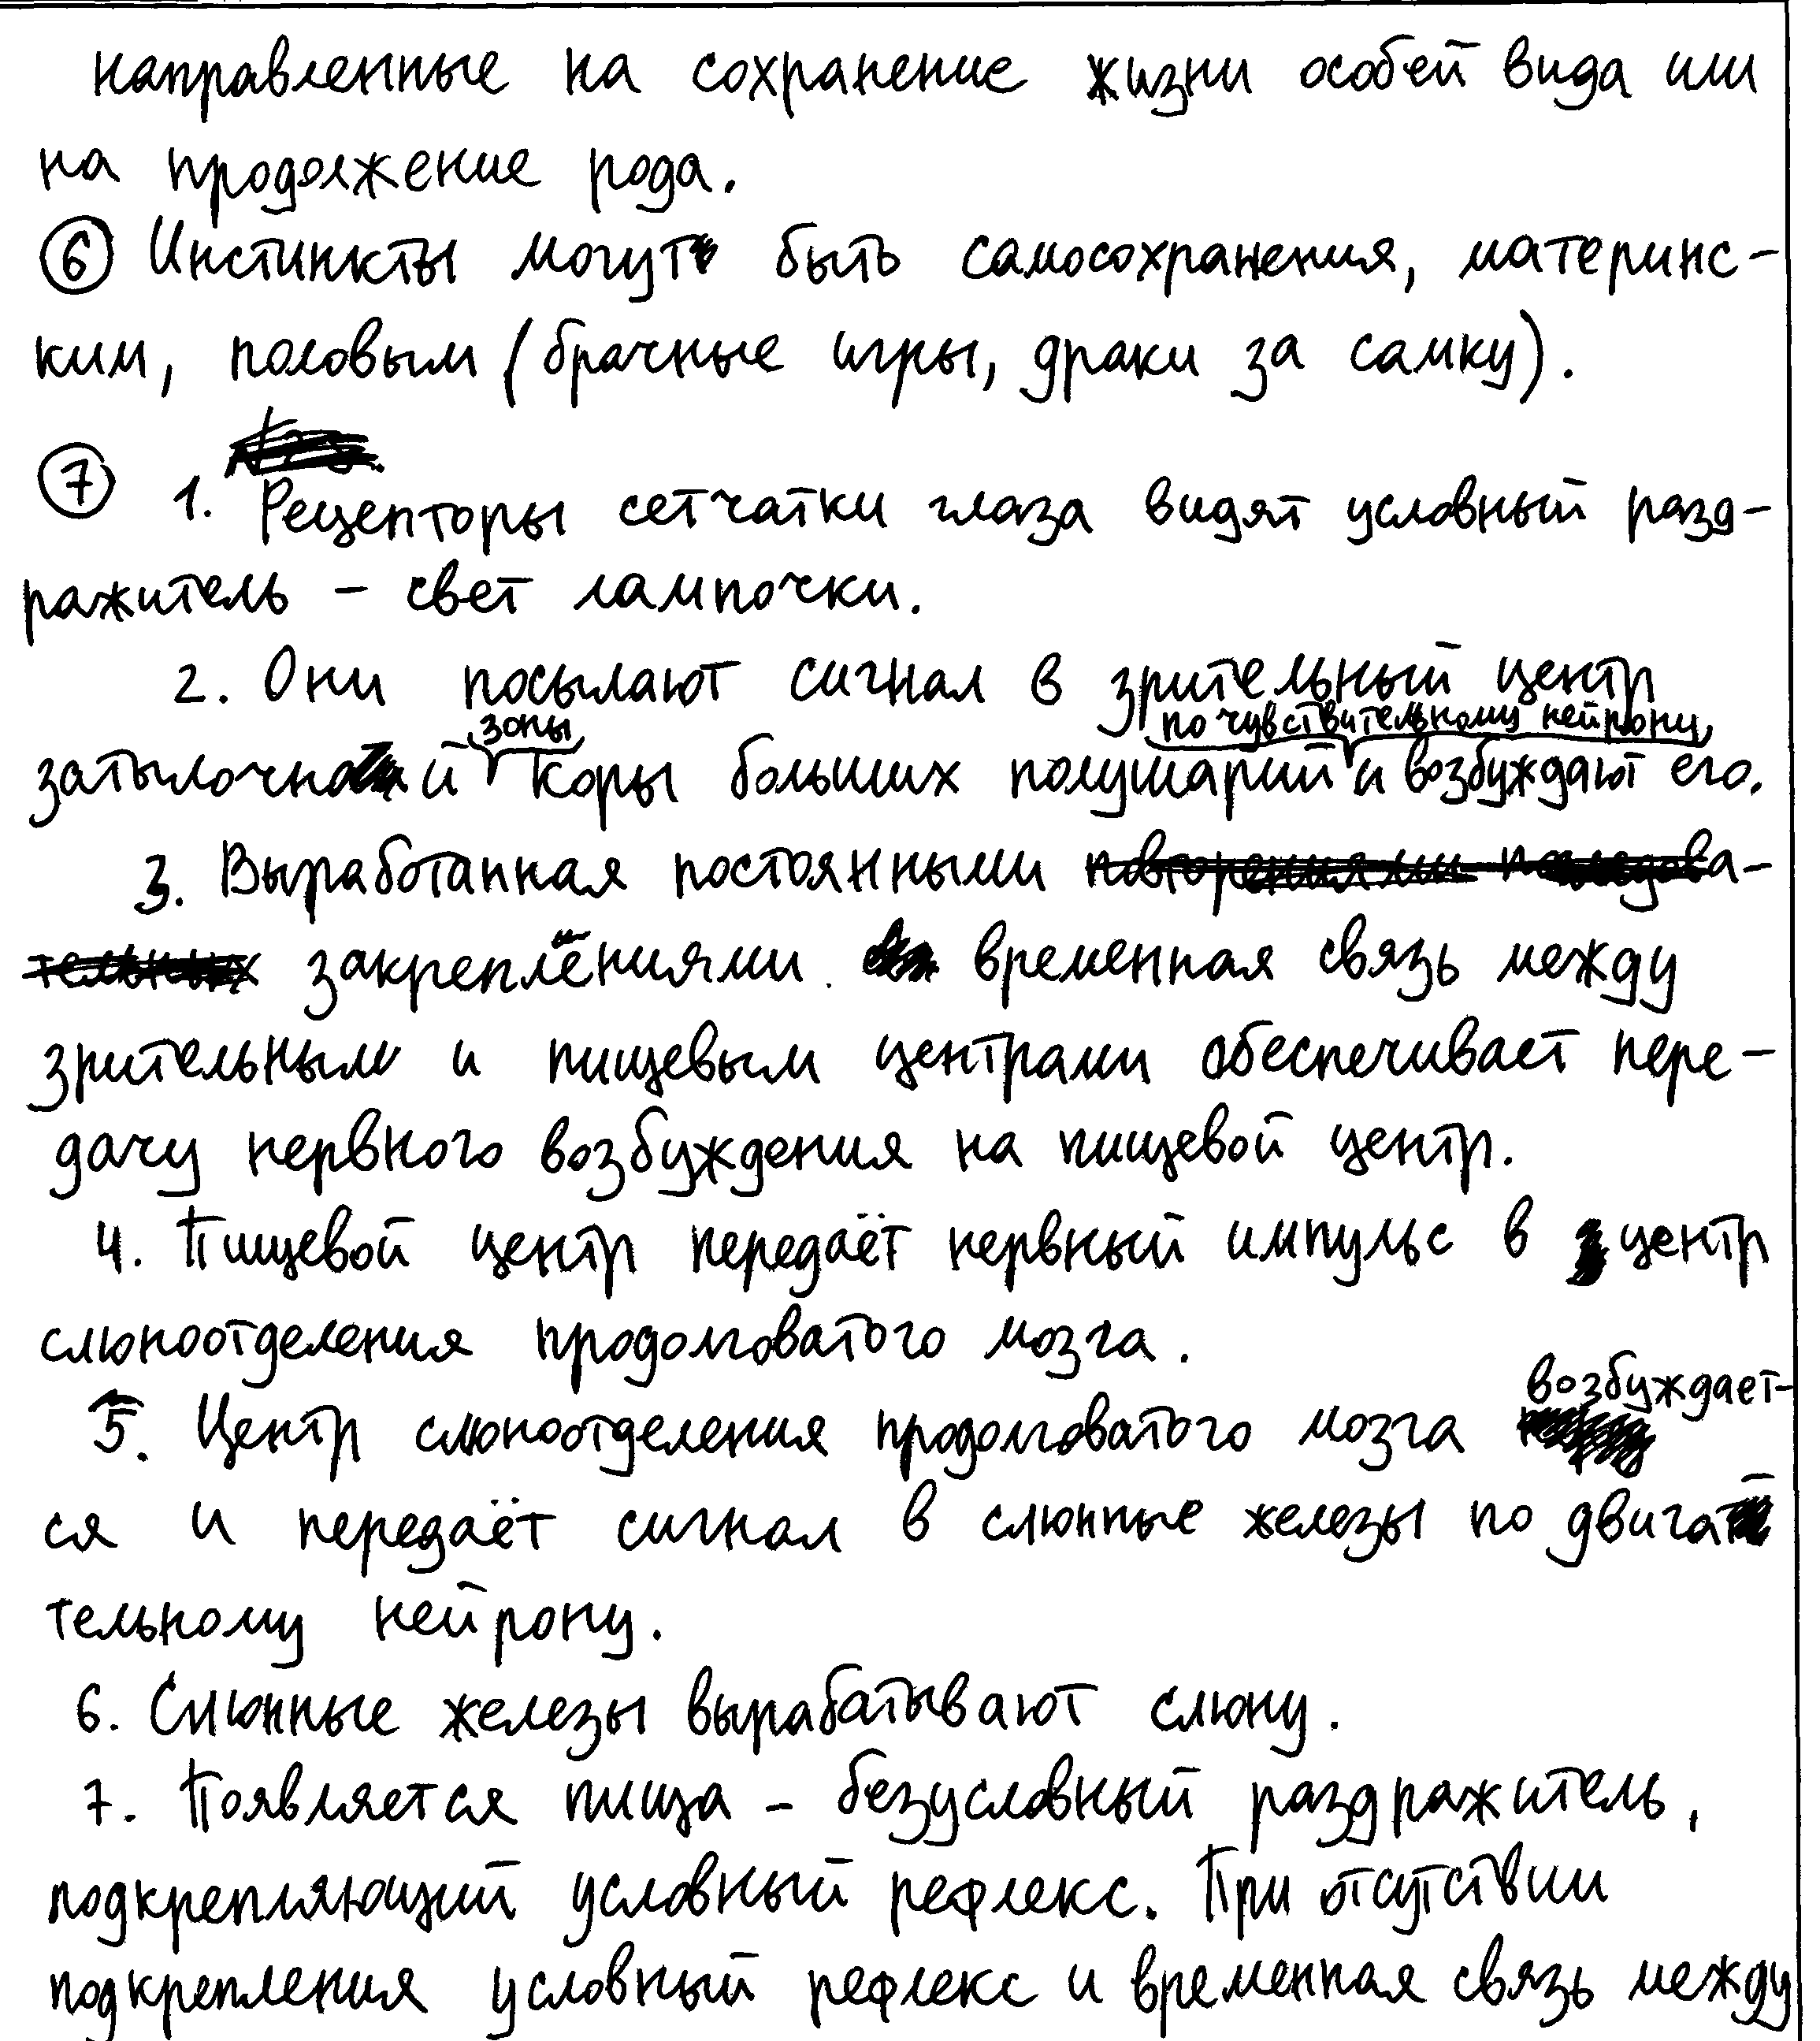 направленные на сохранение жизни особей вида или
на продолжение рода.
⑥ Инстинкты могут быть самосохранения, материнс-
ким, половым (брачные игры, драки за самку).
⑦ 1. Рецепторы сетчатки глаза видят условный разд-
ражитель – свет лампочки.
2. Они посылают сигнал в зрительный центр
зоны по чувствительному нейрону
затылочной коры больших полушарий и возбуждают его.
3. Выработанная постоянными повторениями последова-
тельных закреплениями временная связь между
зрительным и пищевым центрами обеспечивает пере-
дачу нервного возбуждения на пищевой центр.
4. Пищевой центр передаёт нервный импульс в центр
слюноотделения продолговатого мозга.
возбуждает-
5. Центр слюноотделения продолговатого мозга
ся и передаёт сигнал в слюнные железы по двига
тельному нейрону.
6. Слюнные железы вырабатывают слюну.
7. Появляется пища – безусловный раздражитель,
подкрепляющий условный рефлекс. При отсутствии
подкрепления условный рефлекс и временная связь между